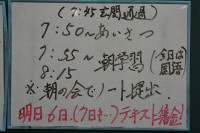 (7:45玄関通過)
7:50〜あいさつ
7:55〜
8:15 朝学習(今日は国語)
※朝の会でノート提出.
明日6日.(7日も…)テキスト集金!